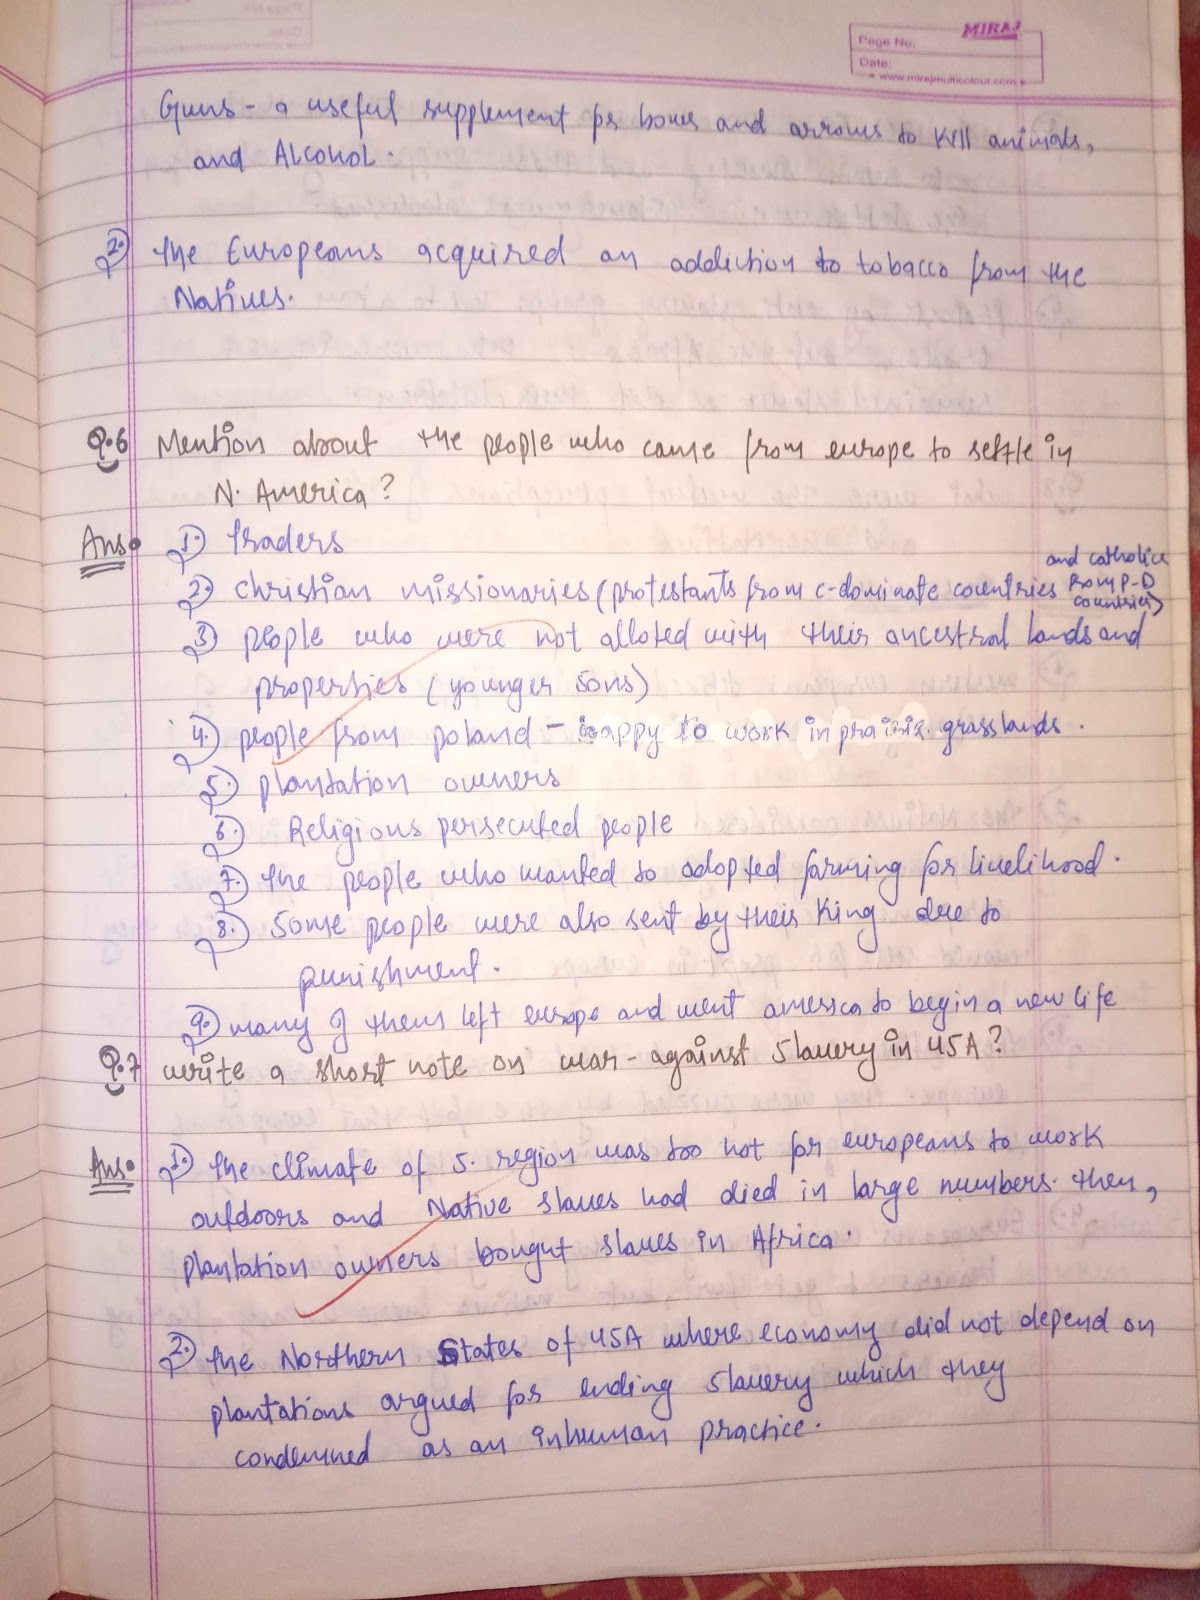 MIRAJ
Page No.
Date:
www.mirajmulticolour.com
Guns - a useful supplement for bows and arrows to kill animals,
and Alcohol.
2. The Europeans acquired an addiction to tobacco from the
Natives.
Q.6 Mention about the people who came from europe to settle in
N. America?
Ans. 1. traders
2. christian missionaries (protestants from c-dominate countries and catholics from P-D countries)
3. people who were not alloted with their ancestral lands and
properties (younger sons)
4. people from poland - happy to work in prairie grasslands.
5. plantation owners
6. Religious persecuted people
7. the people who wanted to adopted farming for livelihood.
8. Some people were also sent by their King due to
punishment.
9. many of them left europe and went america to begin a new life
Q.7 write a short note on war-against slavery in USA?
Ans. 1. The climate of S. region was too hot for europeans to work
outdoors and Native slaves had died in large numbers. then,
plantation owners bought slaves in Africa.
2. the Northern States of USA where economy did not depend on
plantations argued for ending slavery which they
condemned as an inhuman practice.